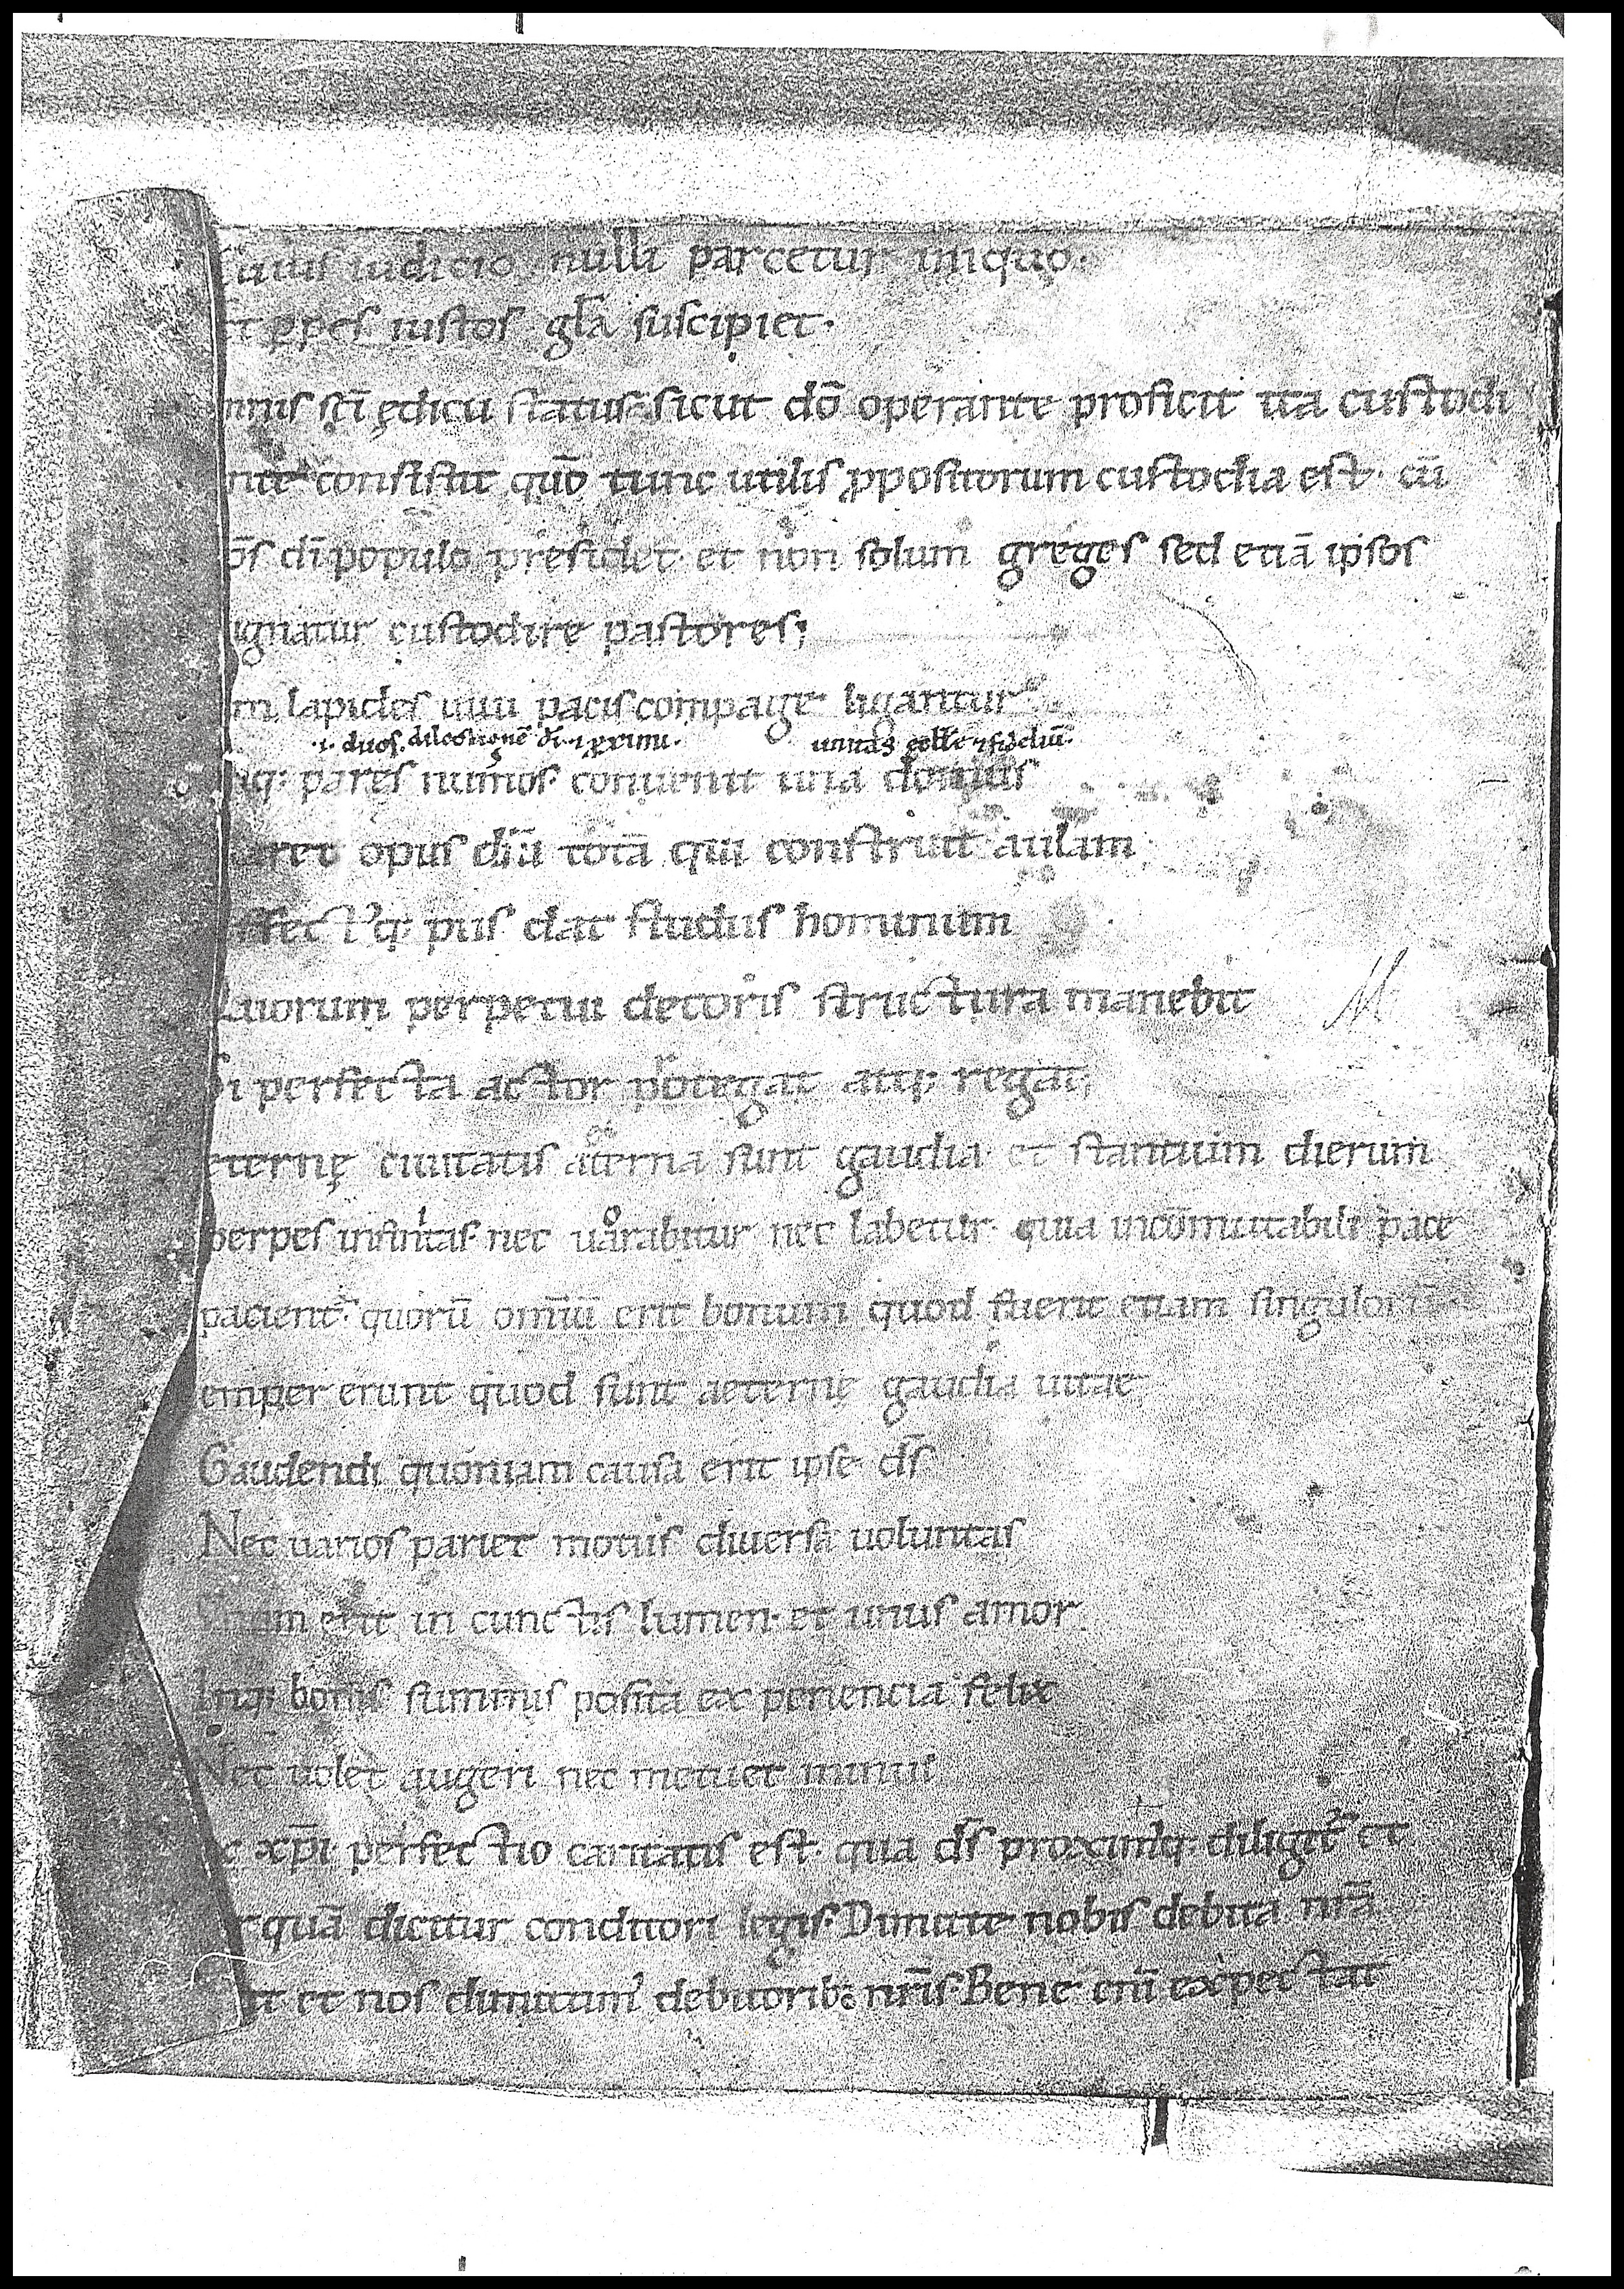 Cuius iudicio nulli parcetur iniquo.
Et ꝑpes iustos gl̄a suscipiet.
mnis sc̄i ędicii status. sicut dō operante proficit ita custodi
nte consistit quō tunc utilis p̱positorum custodia est. cū
ōs dī populo presidet. et non solum greges sed etiā ipsos
ignatur custodire pastores;
m lapides uiui pacis compage ligantur
.i. duos. dilectionē dī. ⁊ ꝓximi. unitas eccl̄e ⁊ fideliū.
inq: pares numos. conuenit una domus
aret opus dn̄i totā qui construit aulam
ffectꝰq: pius dat studiis hominum
Quorum perpetui decoris structura manebit
Si perfecta actor protegat atq; regat;
eternę ciuitatis aeterna sunt gaudia. et stantium dierum
perpes infinitas. nec uariabitur nec labetur. quia incōmutabili pace
pacient᷑. quorū omīū erit bonum quod fuerit etiam singulorū
emper erunt quod sunt aeternę gaudia uitae
Gaudendi quoniam causa erit ipse dś
Nec uarios pariet motus diuersa uoluntas
Vnum erit in cunctis lumen. et unus amor
Inq: bonis summis posita experiencia felix
Nec uolet augeri nec metuet minui
c xp̄i perfectio caritatis est. qua dś proximꝰq. diligit᷑ et
quā dicitur conditori legis. Dimitte nobis debita nr̄a
ut et nos dimittimꝰ debitorib; nr̄is. Bene enī expectat